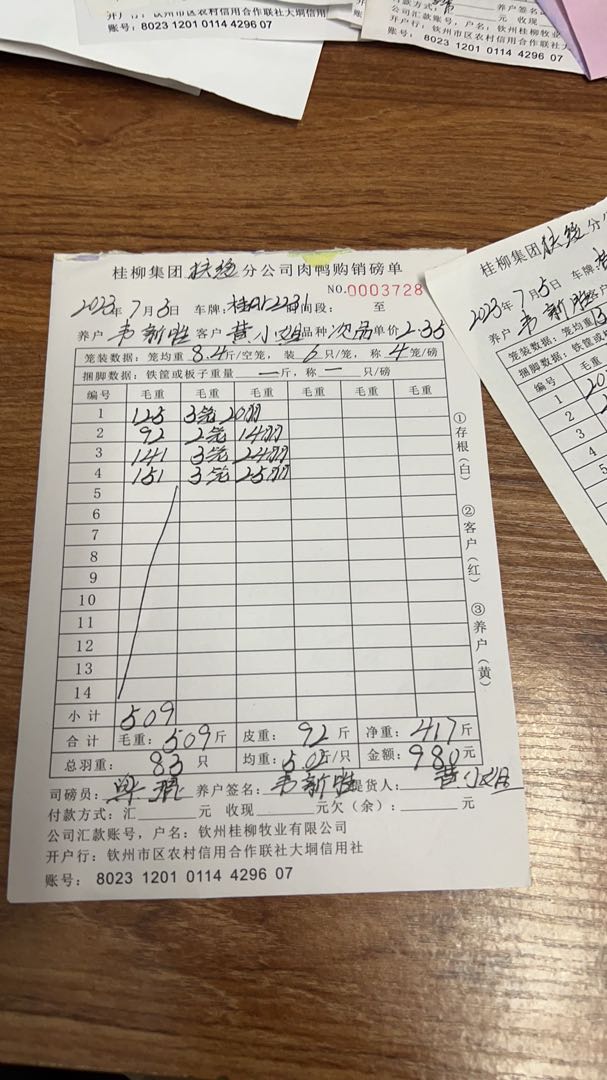 开户行：钦州市区农村信用合作联社大垌信用
账号：8023 1201 0114 4296 07
付款方式：
元 收现
养户签名
公司汇款账号，户名：钦州桂柳牧业
开户行：钦州市区农村信用合作联社大垌
账号：8023 1201 0114 4296 07
桂柳集团扶绥分公司肉鸭购销磅单
NO.0003728
2023年7月3日 车牌： 时间段： 至
养户 韦新胜 客户 黄小姐 品种 次品 单价 2.35
笼装数据：笼均重 8.4 斤/空笼，装 6 只/笼，称 4 笼/磅
捆脚数据：铁筐或板子重量 一 斤，称 一 只/磅
编号 毛重 毛重 毛重 毛重 毛重 毛重
1 125 3笼 20羽
2 92 2笼 14羽
3 141 3笼 24羽
4 151 3笼 25羽
5
6
7
8
9
10
11
12
13
14
小计 509
合计 毛重：509斤 皮重：92斤 净重：417斤
总羽重：83只 均重：5.02斤/只 金额：980元
司磅员： 养户签名：韦新胜 提货人：黄小姐
付款方式：汇 元 收现 元欠（余）： 元
公司汇款账号，户名：钦州桂柳牧业有限公司
开户行：钦州市区农村信用合作联社大垌信用社
账号：8023 1201 0114 4296 07
①存根（白） ②客户（红） ③养户（黄）
桂柳集团扶绥分
2023年7月3日 车牌：
养户 韦新胜 客户
笼装数据：笼均重
捆脚数据：铁筐或
编号 毛重
1
2
3
4
5